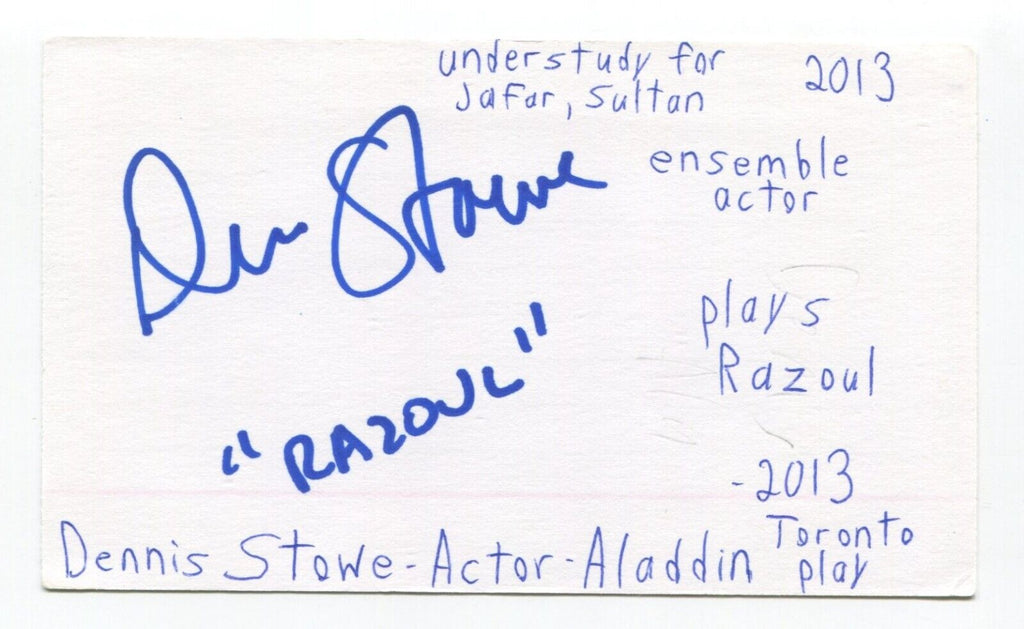 understudy for
Jafar, Sultan
2013
ensemble
actor
Den Stowe
plays
Razoul
"RAZOUL"
-2013
Toronto
play
Dennis Stowe-Actor-Aladdin